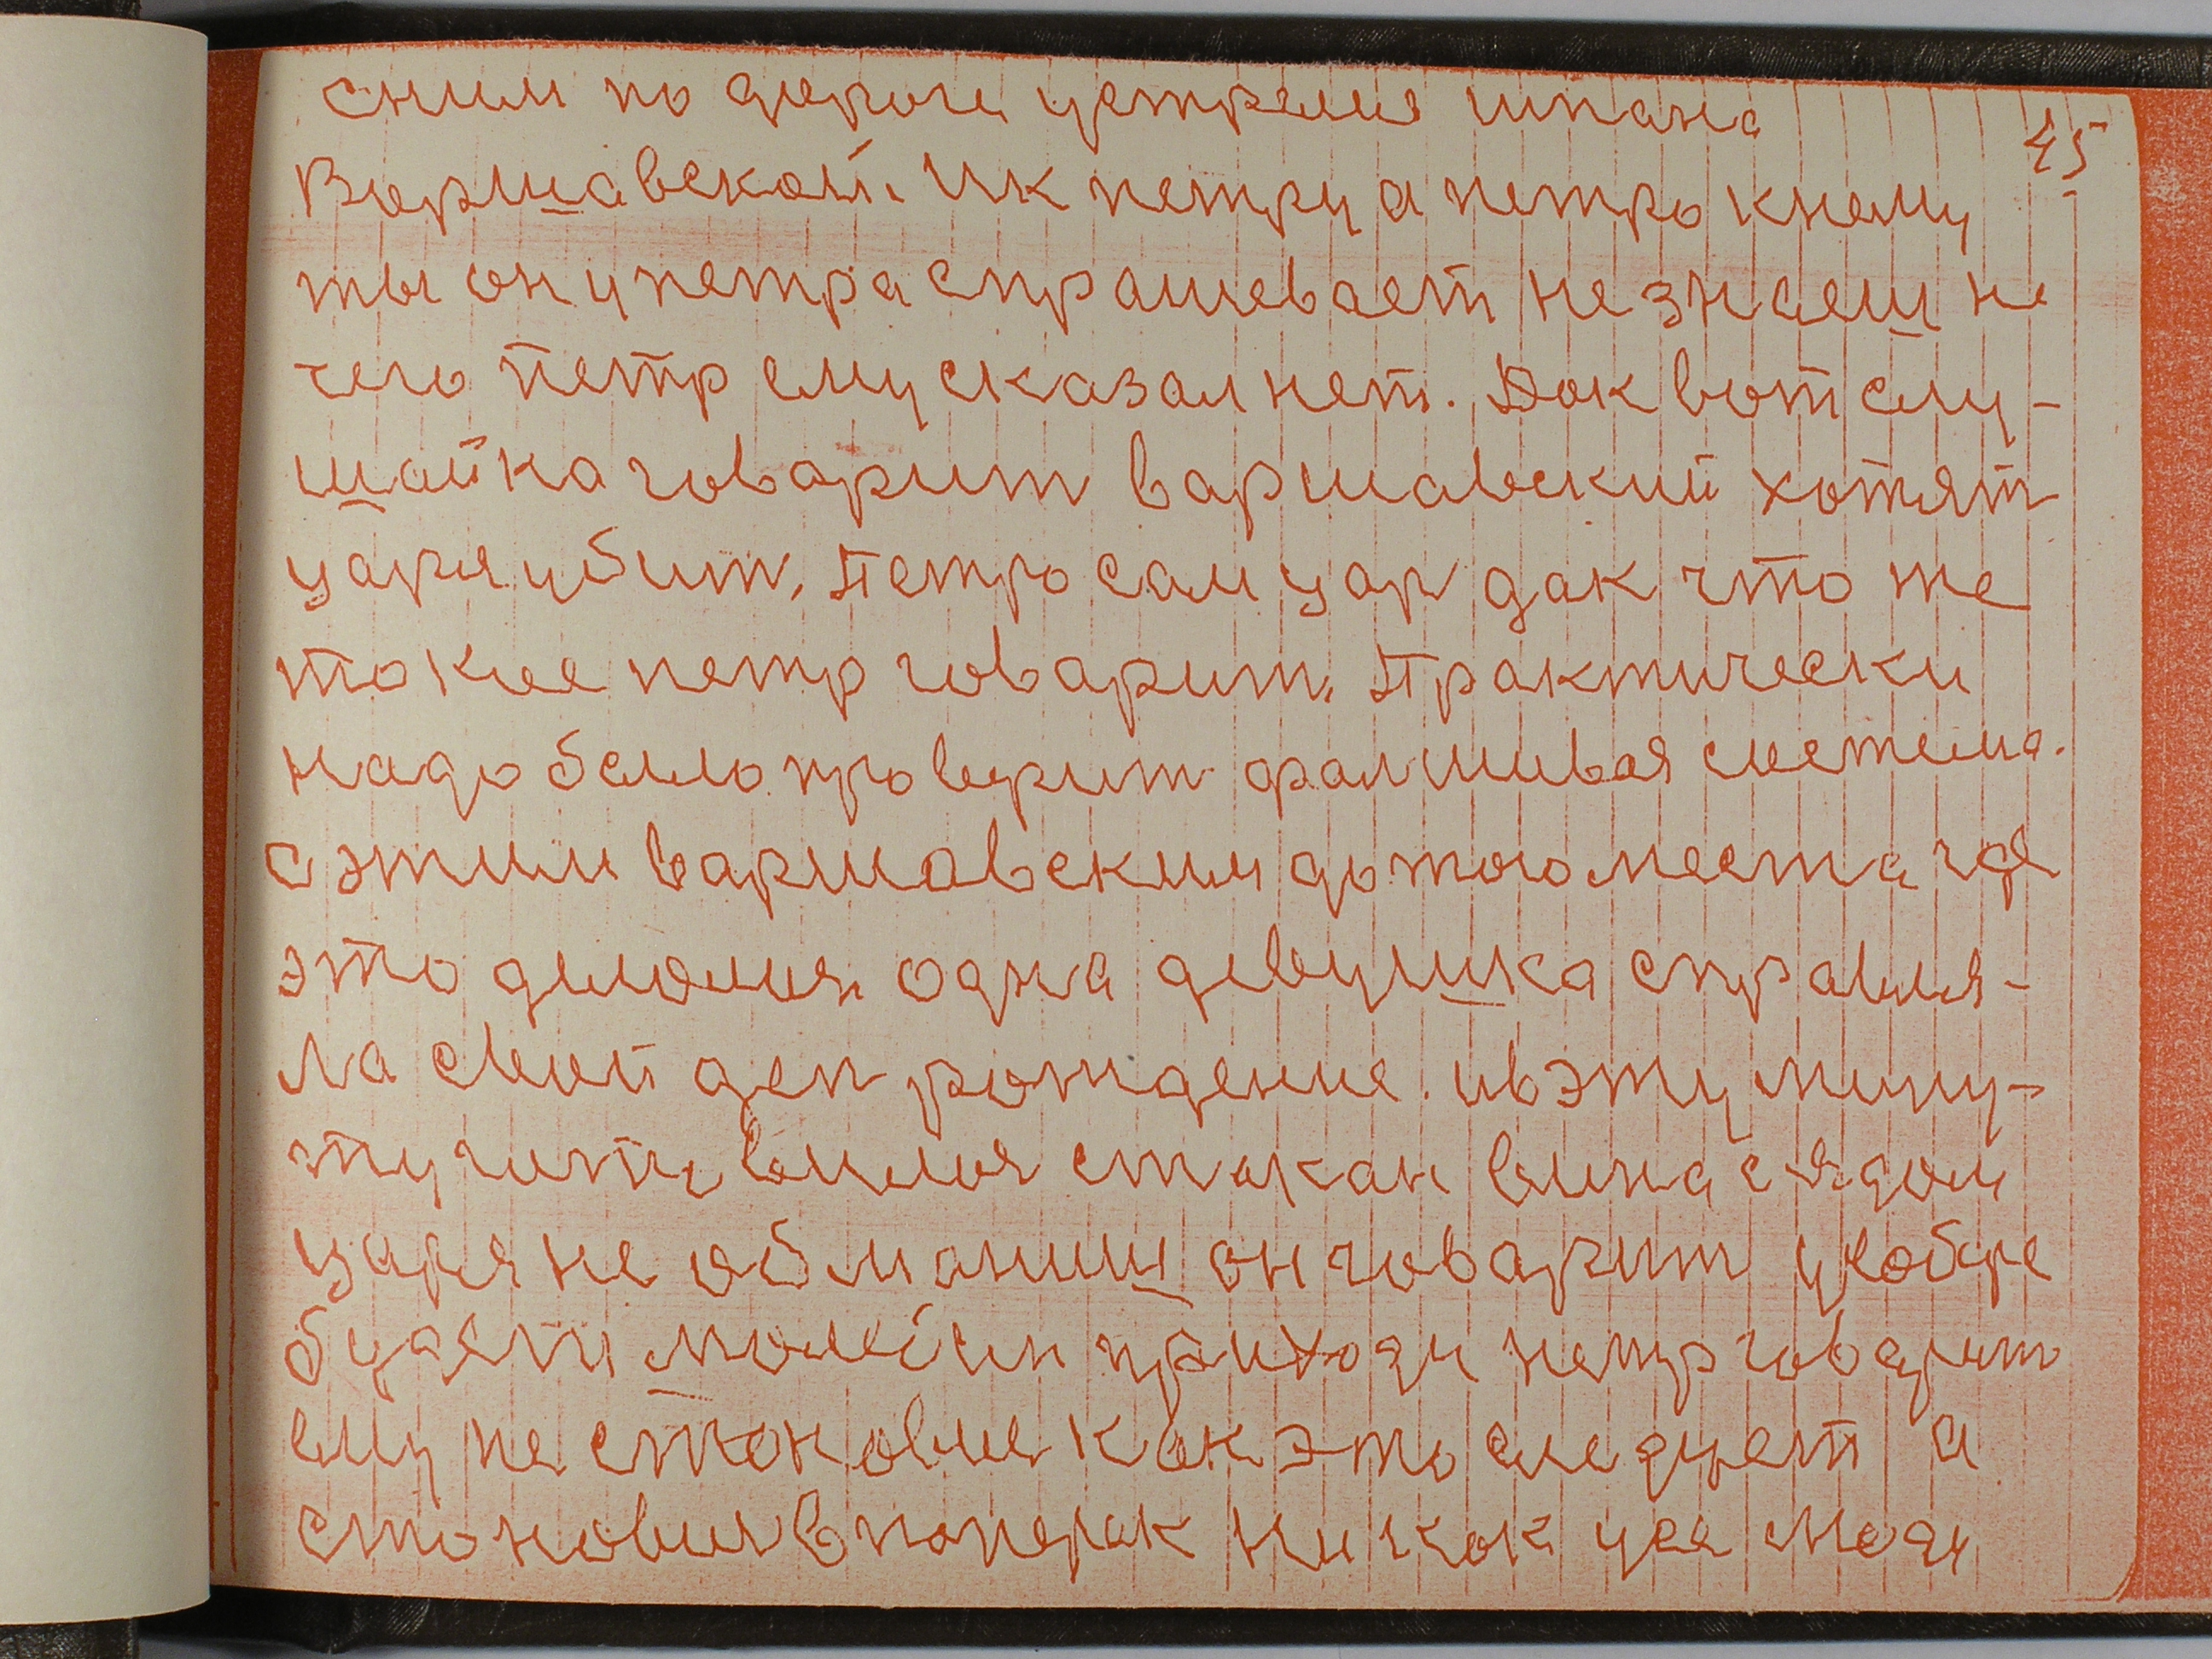 сним по дороги устрелив шпана
45
Воршавской. Ик петру а петро кнему
ты он у петра спрашевает не знаеш не
чего петр ему сказал нет. Док вот слу-
шайка говарит варшавский хотят
царя убит. Петро сам цар дак что же
токие петр говарит. Практически
надо было проверит фалшивая система.
с этим варшавским до того места где
это делолия одна девушка справля-
ла свой ден рождение. ив эту мину-
ту стакан вина с ядом
царя не обманиш он говарит
будет приходи петр говарит
ему не становие как это следует а
становия в поперек ни как